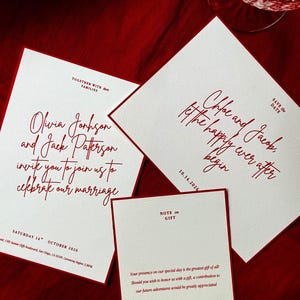 TOGETHER WITH their
FAMILIES
Olivia Jonhson
and Jack Patterson
invite you to join us to
celebrate our marriage
SATURDAY 14TH OCTOBER 2026
SAVE the
DATE
Chloe and Jacob
let the happily ever after
begin
10.14.2026
NOTE on
GIFT
Your presence on our special day is the greatest gift of all!
Should you wish to honor us with a gift, a contribution to
our future adventures would be greatly appreciated